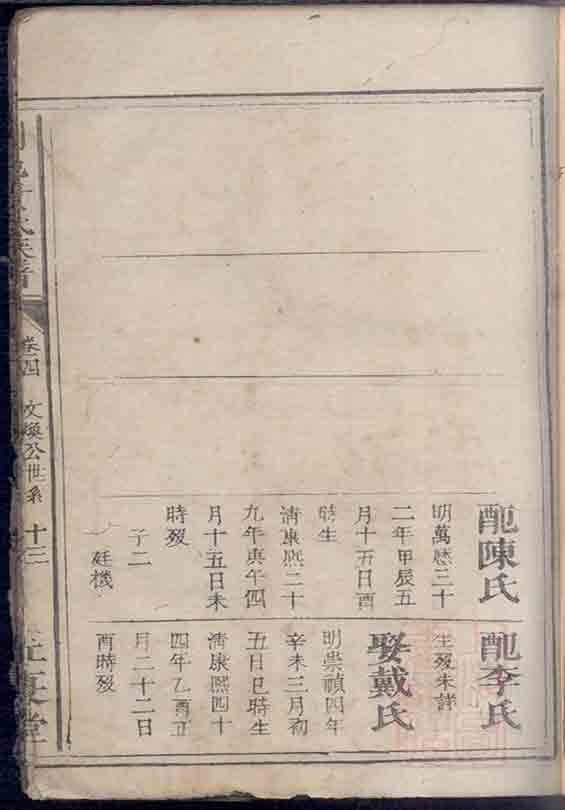 配陳氏
明萬歷三十
二年甲辰五
月十五日酉
時生
清康熙二十
九年庚午四
月十五日未
時歿
子二
廷機
配李氏
生歿未詳
娶戴氏
明崇禎四年
辛未三月初
五日巳時生
清康熙四十
四年乙酉正
月二十二日
酉時歿
氏族譜
卷四
文煥公世系
十三
堂